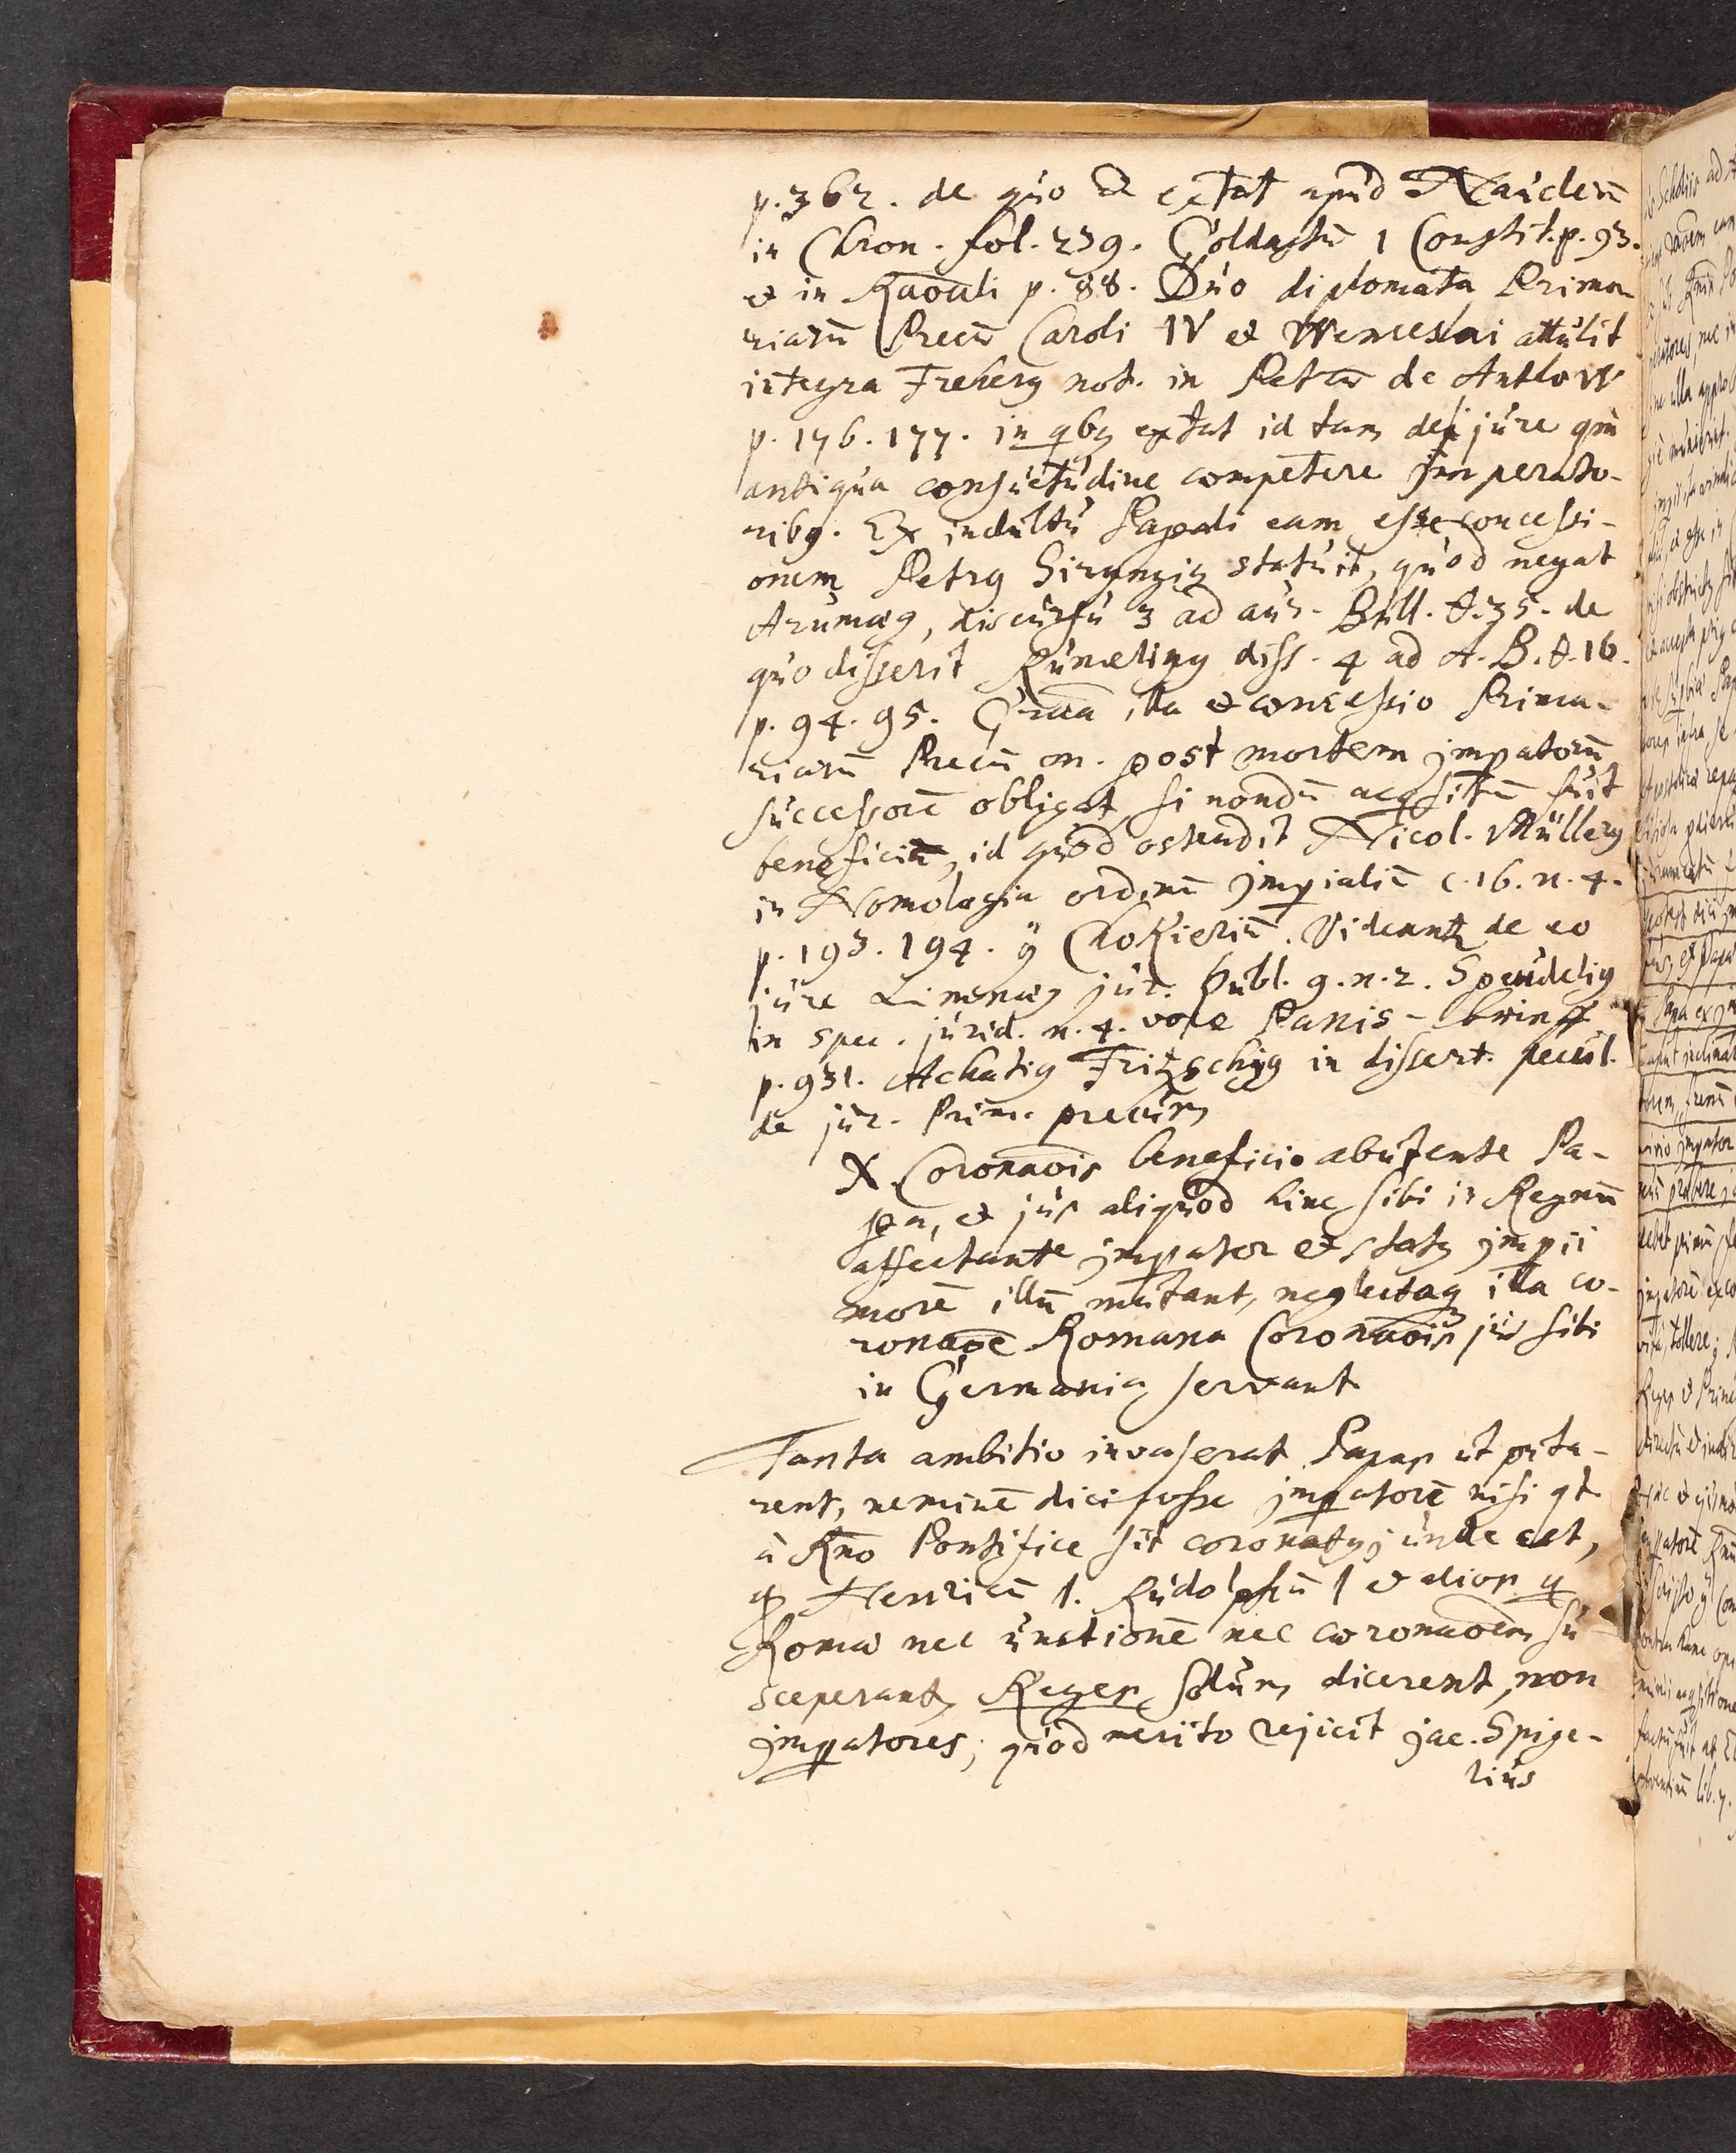 p. 362. de quo & extat apud Nauclerū
in Chron. fol. 239. Goldastū 1 Constit. p. 93.
et in Raouli p. 88. Duo diplomata Prima-
riarū Precū Caroli IV et Wenceslai attulit
integra Freherg not. in Petrū de Andlow
p. 176. 177. in qbg extat id tam de jure qm
antiqua consuetudine competere Imperato-
ribg. Ex indultu Papali eam esse concessi-
onem Petrg Siryngig statuit, quod negat
Arumæg, discursu 3 ad aur. Bull. t. 35. de
quo disserit Rumelingg diss. 4 ad A. B. t. 16.
p. 94. 95. Graā illa et concessio Prima-
riarū Precū m. post mortem jmpatorū
successorē obligat, si nondū acqsitū fuit
beneficiū, id quod ostendit Nicol. Müllerg
in Nomologia ordinū jmpialiū c. 16. n. 4.
p. 193. 194. ÿ Chokieriū. Videantr de eo
jure Limnæg jur. publ. 9. n. 2. Speidelig
in spec. jurid. n. 4. voce Panis-brieff
p. 931. Achatig Fritzschig in dissert. pecul.
de jur. Prim. precum
X. Coronaōis beneficio abutente Pa-
pa, et jus aliquod hinc sibi in Regnū
affectante jmpator et statg jmpii
morē illū mutant, neglectaq illa co-
ronaōe Romana Coronaōis jus sibi
in Germania servant
Tanta ambitio invaserat Papas ut puta-
rent, neminē dici posse jmpatorē nisi qt
a Rno Pontifice sit coronatg; unde est,
q Henricū 1. Rudolphū 1 et alios q
Romæ nec unctionē nec coronaōem su-
sceperant, Reges solum dicerent, non
jmpatores; quod merito rejicit jac. Spige-
lius